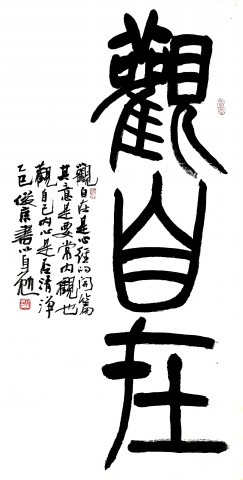 觀自在
觀自在是心經的開篇
其意是要常内觀也
觀自己内心是否清淨
乙巳俊良書以自勉